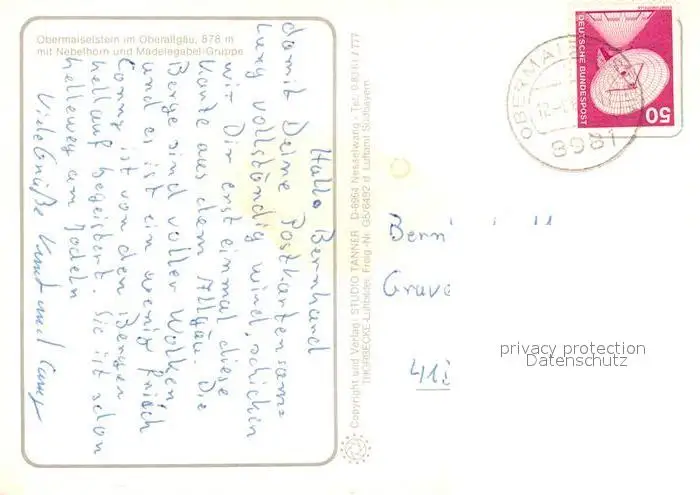 Obermaiselstein im Oberallgäu, 878 m
mit Nebelhorn und Mädelegabel-Gruppe
Hallo Bernhard
damit Deine Postkartensam=
lung vollständig wird, schicken
wir Dir erst einmal diese
Karte aus dem Allgäu. Die
Berge sind voller Wolken
und es ist ein wenig frisch
Conny ist von den Bergen
hellauf begeistert. Sie ist schon
am Jodeln
Viele Grüße Knut und Conny
Copyright und Verlag: STUDIO TANNER D-8964 Nesselwang - Tel. 0 83 61 / 777
THORBECKE-Luftbilder, Freig.-Nr. GS/6492 d. Luftamt Südbayern
OBERMAI
8981
DEUTSCHE BUNDESPOST
50
Bern
Grave
41
privacy protection
Datenschutz